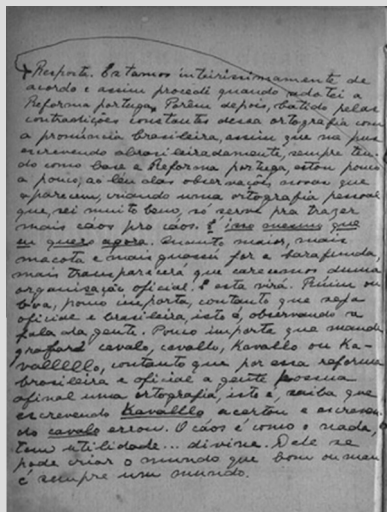 Resposta. Estamos inteirissimamente de
acordo e assim procedi quando adotei a
Reforma portuga. Porêm depois, batido pelas
contradições constantes dessa ortografia com
a pronúncia brasileira, assim que me pus
escrevendo abrasileiradamente, sempre ten-
do como base a Reforma portuga, estou pouco
a pouco, ao leu das observações novas que
aparecem, criando uma ortografia pessoal
que, sei muito bem, só serve pra trazer
mais cáos pro cáos. E isso mesmo que
eu quero agora. Quanto maior, mais
macota e mais guassú for a sarapanda,
mais transparecerá que carecemos duma
organização oficial. E esta virá. Ruim ou
boa, pouco importa, contanto que seja
oficial e brasileira, isto é, observando a
fala da gente. Pouco importa que mande
grafar cavalo, cavallo, Kavallo ou Ka-
vallllo, contanto que por essa reforma
brasileira e oficial a gente possua
afinal uma ortografia, isto é, saiba que
escrevendo Kavalllo acertou e escreven-
do cavalo errou. O cáos é como o nada,
tem utilidade... divina. Dele se
pode criar o mundo que bom ou mau
é sempre um mundo.